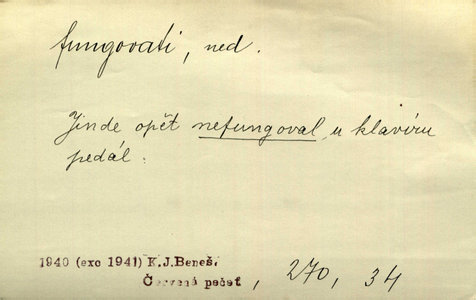 fungovati, ned.
Jinde opět nefungoval u klavíru
pedál.
1940 (exc 1941) K.J.Beneš.
Červená pečeť, 270, 34